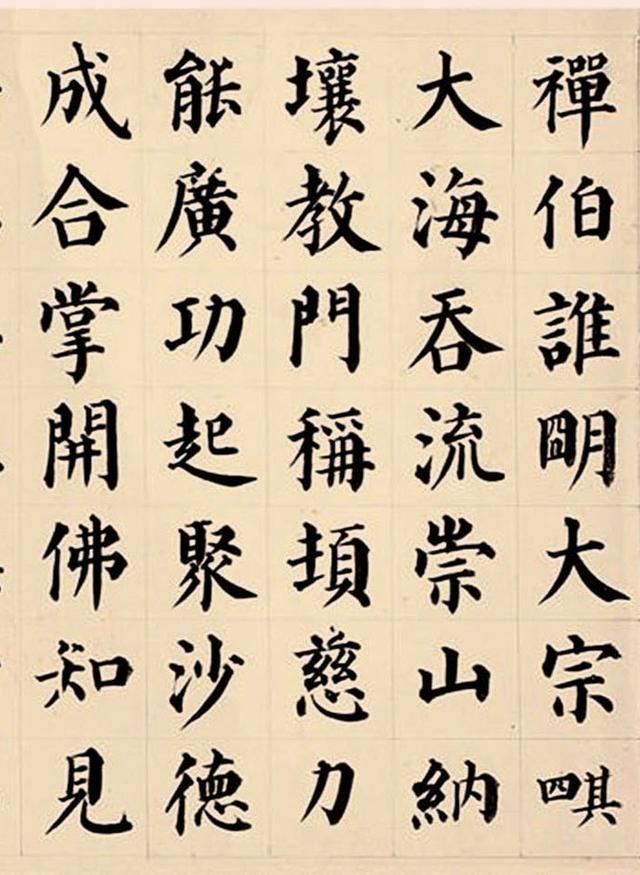 禪伯誰朙大宗其四
大海吞流崇山納
壤教門稱頓慈力
能廣功起聚沙德
成合掌開佛知見